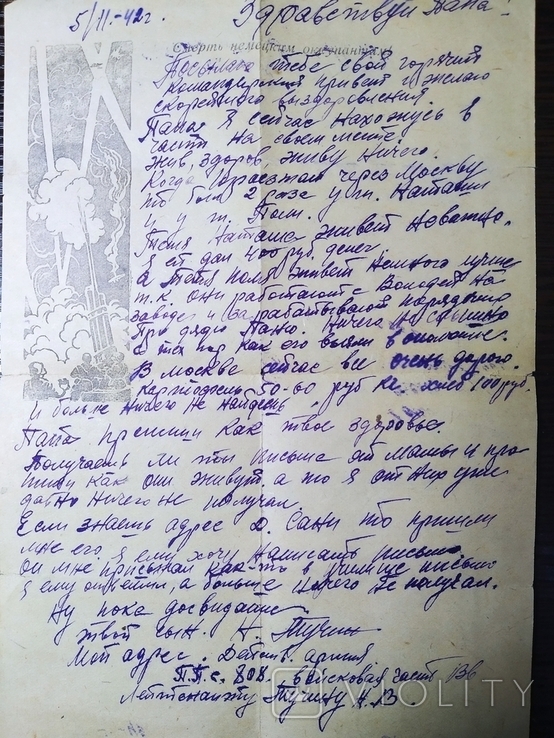 5/II-42г. Здравствуй Папа!
Смерть немецким оккупантам!
Посылаю тебе свой горячий
командирский привет и желаю
скорейшего выздоровления.
Папа я сейчас нахожусь в
части на своем месте,
жив, здоров, живу ничего.
Когда проезжал через Москву
то был 2 раза у т. Наташи
и у т. Поли.
Тетя Наташа живет неважно,
я ей дал 400 руб. денег.
а тетя Поля живет немного лучше
т.к. они работают с Володей на
заводе и зарабатывают порядочно
Про дядю Паню. Ничего не слышно
с тех пор как его взяли в ополчение.
В москве сейчас все очень дорого.
картофель 50-60 руб кг, хлеб 100 руб.
и больше ничего не найдешь.
Папа пропиши как твое здоровье.
Получаешь ли ты письма от мамы и про-
пиши как они живут, а то я от них уже
давно ничего не получал.
Если знаешь адрес д. Сани то пришли
мне его я ему хочу написать письмо
он мне присылал как-то в училище письмо
я ему ответил, а больше ничего не получал.
Ну пока досвидание
твой сын. Н. Тучин
Мой адрес. Действ. армия
П.П.С. 808. войсковая часть
Лейтенанту Тучину Н.В.
VIOLITY